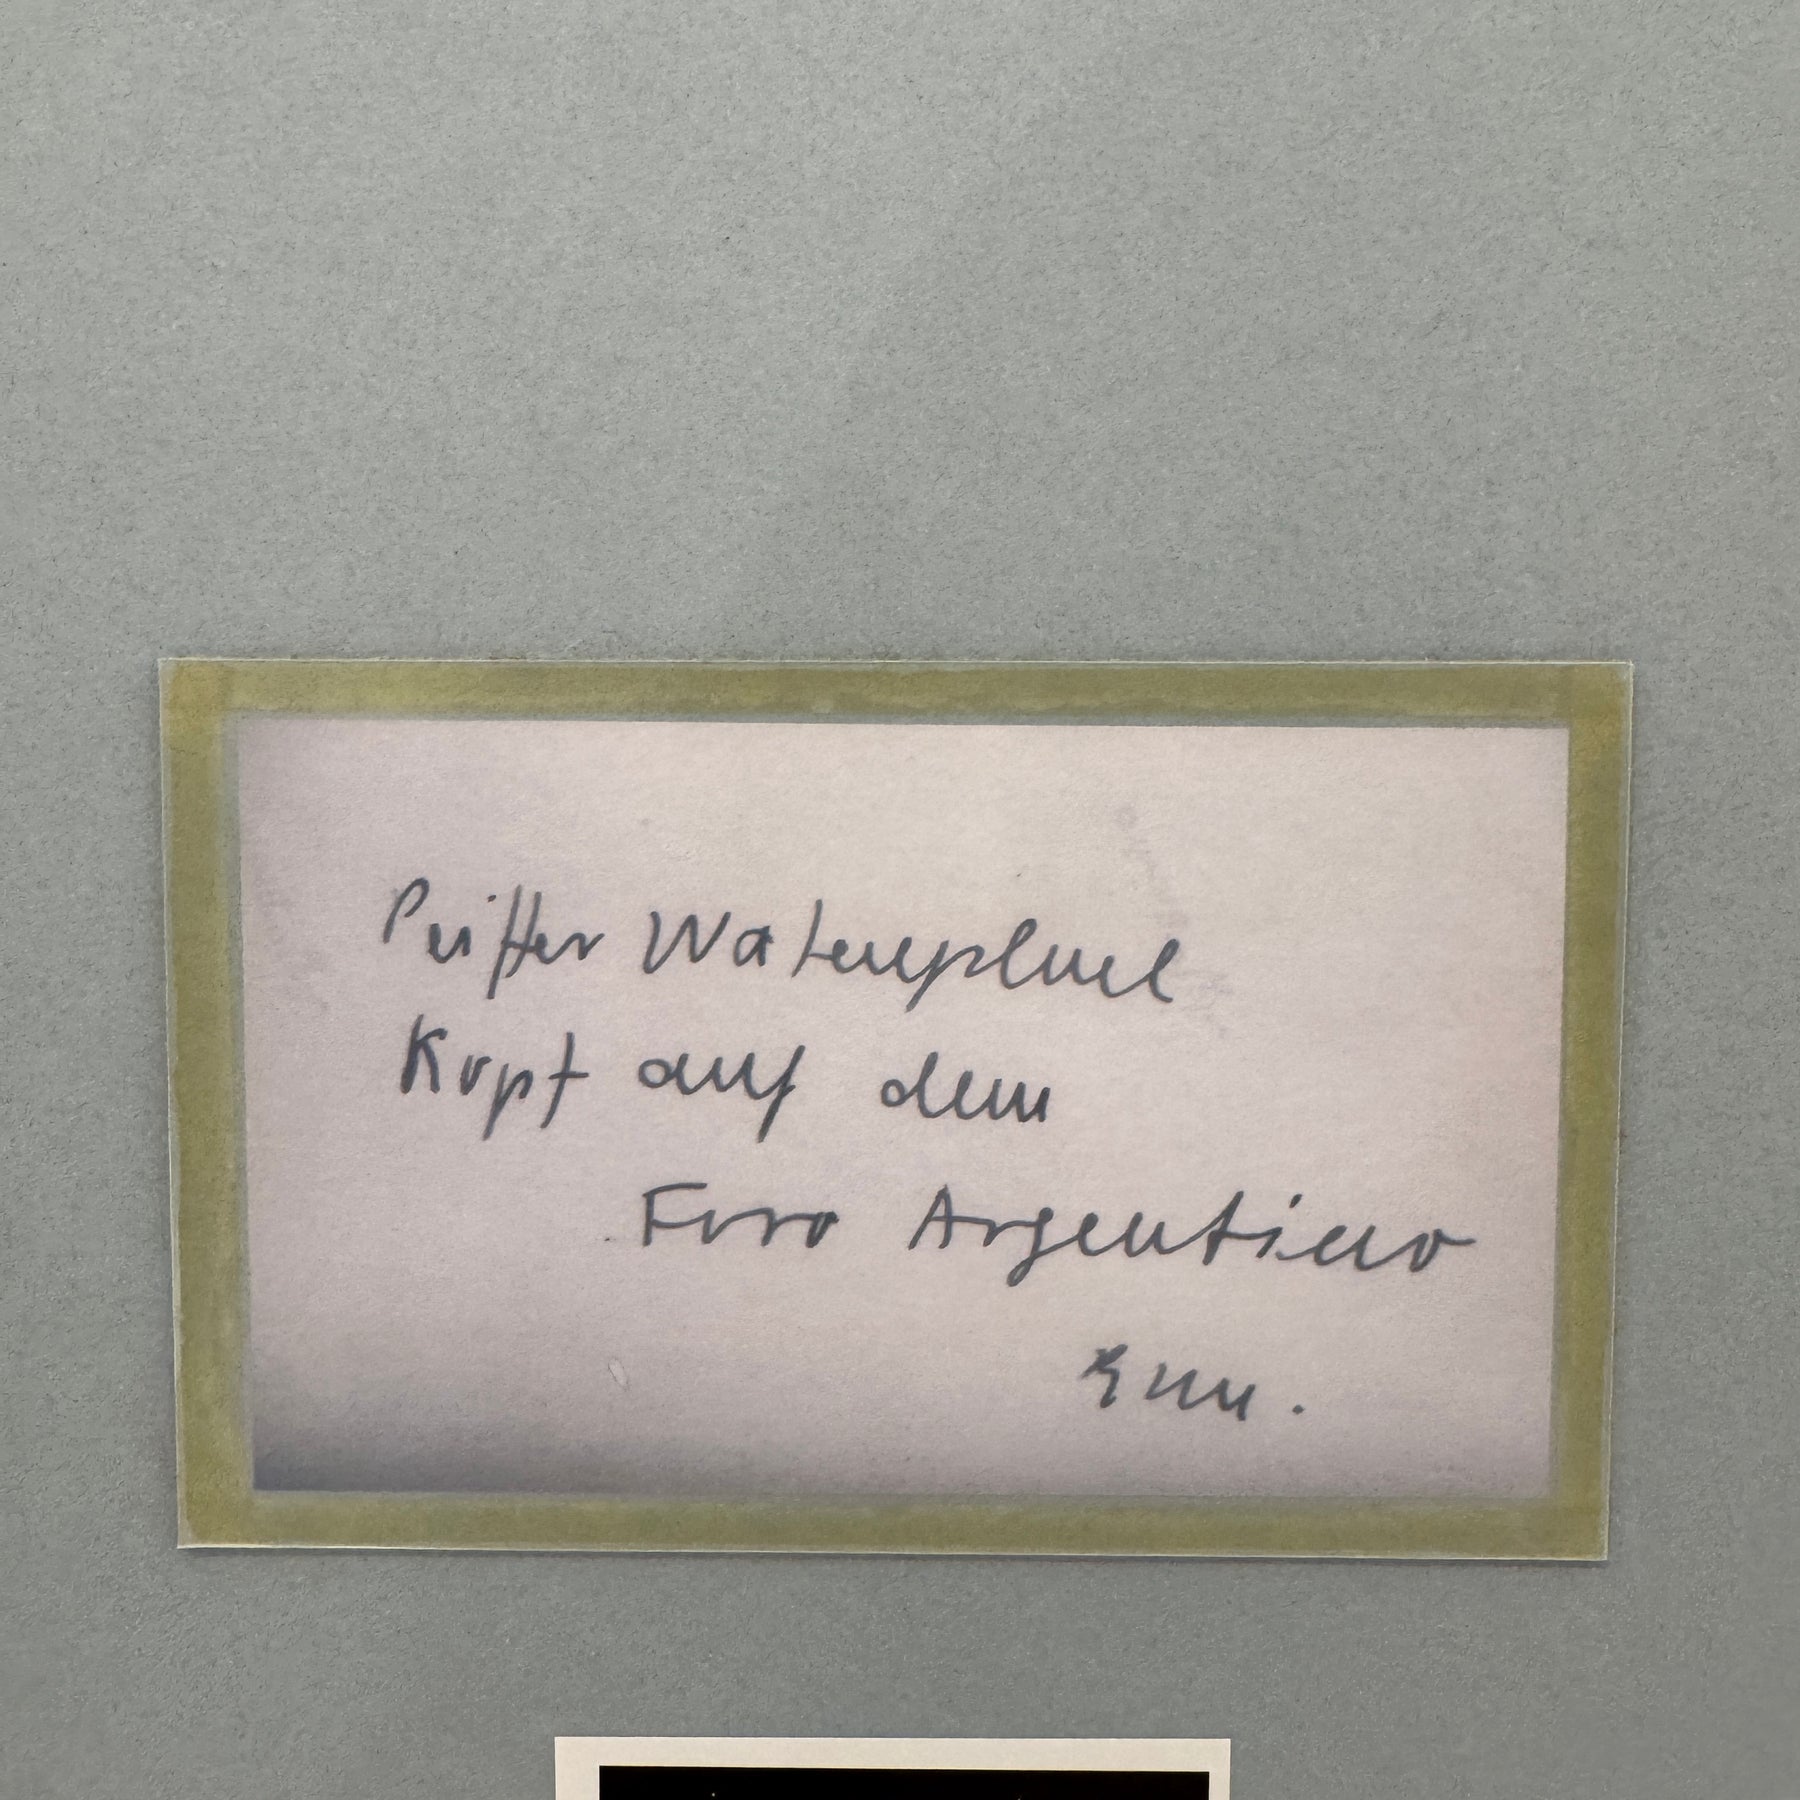 Peiffer Watenphul
Kopf auf dem
Foro Argentino